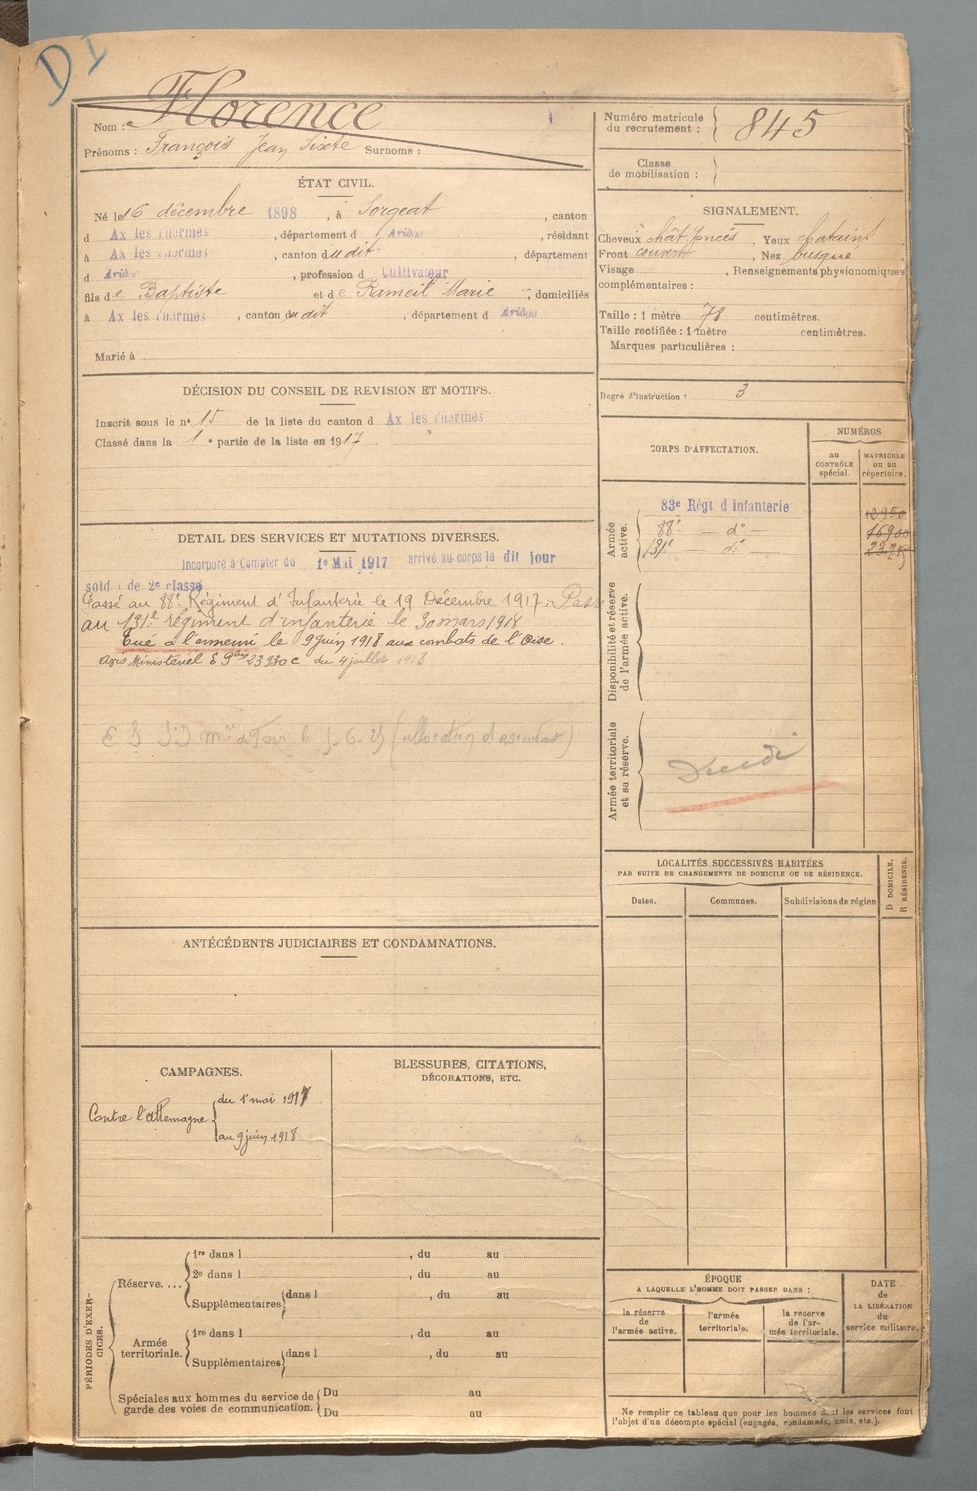 D I
Nom : Florence
Prénoms : François Jean Sixte Surnoms :
Numéro matricule du recrutement : 845
Classe de mobilisation :
ÉTAT CIVIL.
Né le 16 décembre 1898, à Sorgeat, canton
d Ax les Thermes, département d l'Ariège, résidant
à Ax les Thermes, canton dudit, département
d Ariège, profession d Cultivateur
fils de Baptiste et de Rameil Marie, domiciliés
à Ax les Thermes, canton dudit, département d Ariège
Marié à
SIGNALEMENT.
Cheveux chât. foncés, Yeux chatains
Front couvert, Nez busqué
Visage, Renseignements physionomiques
complémentaires :
Taille : 1 mètre 78 centimètres.
Taille rectifiée : 1 mètre centimètres.
Marques particulières :
Degré d'instruction : 3
DÉCISION DU CONSEIL DE REVISION ET MOTIFS.
Inscrit sous le n° 15 de la liste du canton d Ax les Thermes
Classé dans la 1e partie de la liste en 1917
CORPS D'AFFECTATION.
NUMÉROS
au CONTRÔLE spécial.
MATRICULE ou au répertoire.
Armée active.
83e Régt d'infanterie 12950
88e — d° — 16900
131e d°
Disponibilité et réserve de l'armée active.
Armée territoriale et sa réserve.
DÉTAIL DES SERVICES ET MUTATIONS DIVERSES.
Incorporé à Compter du 1er Mai 1917 arrivé au corps le dit jour
soldat de 2e classe
Passé au 88e Régiment d'Infanterie le 19 Décembre 1917. Passé
au 131e régiment d'infanterie le 30 mars 1918
Tué à l'ennemi le 9 juin 1918 aux combats de l'Oise.
Avis Ministériel du 4 juillet 1918
LOCALITÉS SUCCESSIVES HABITÉES
PAR SUITE DE CHANGEMENTS DE DOMICILE OU DE RÉSIDENCE.
Dates.
Communes.
Subdivisions de région
D DOMICILE,
R RÉSIDENCE.
ANTÉCÉDENTS JUDICIAIRES ET CONDAMNATIONS.
CAMPAGNES.
Contre l'allemagne
du 1er mai 1917
au 9 juin 1918
BLESSURES, CITATIONS,
DÉCORATIONS, ETC.
PÉRIODES D'EXERCICES.
Réserve. ...
1re dans l , du au
2e dans l , du au
Supplémentaires dans l , du au
Armée territoriale.
1re dans l , du au
Supplémentaires dans l , du au
Spéciales aux hommes du service de
garde des voies de communication.
Du au
Du au
ÉPOQUE
A LAQUELLE L'HOMME DOIT PASSER DANS :
la réserve de l'armée active.
l'armée territoriale.
la réserve de l'armée territoriale.
DATE de LA LIBÉRATION du service militaire.
Ne remplir ce tableau que pour les hommes dont les services font
l'objet d'un décompte spécial (engagés, condamnés, omis, etc.).